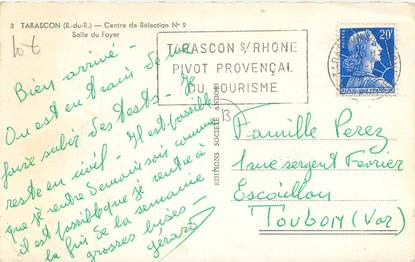 3 TARASCON (B.-du-R.) — Centre de Sélection N° 9
Salle du Foyer
TARASCON S/RHONE
PIVOT PROVENÇAL
DU TOURISME
20F
Bien arrivé -
On est en train de me
faire subir des tests - Je
reste en civil - Il est possible
que je rentre demain soir comme
il est possible que je rentre à
la fin de la semaine
grosses bises -
Gérard
EDITIONS SOCIETE
Famille Perez
1 rue sergent Fevrier
Escaillon
Toulon (Var)